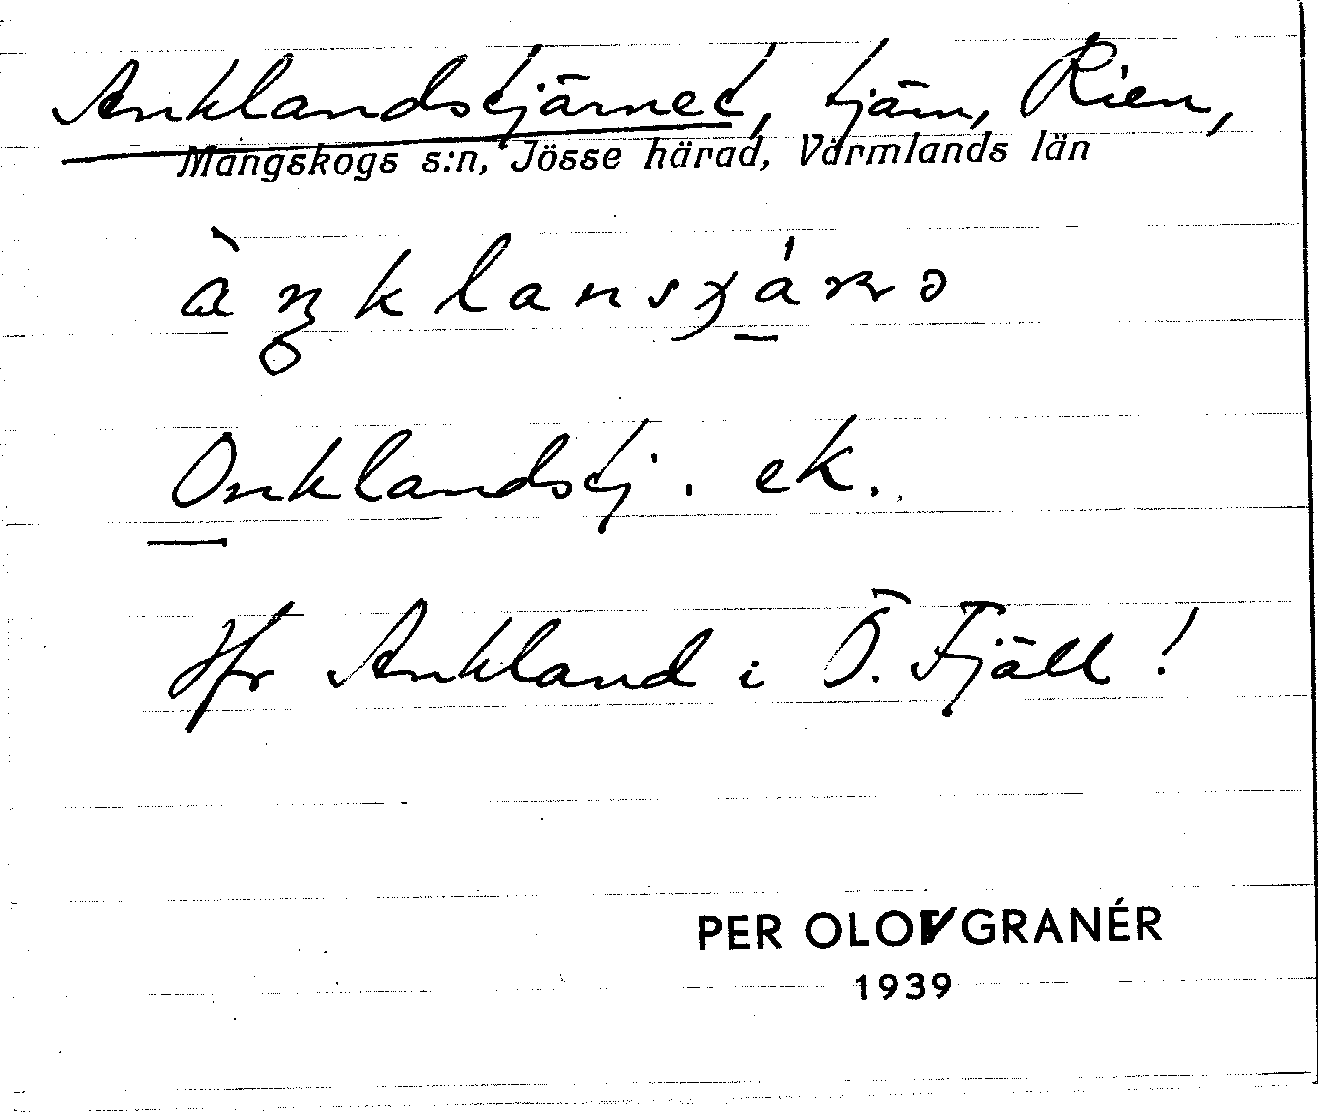 Anklandstjärnet, tjärn, Rien,
Mangskogs s:n, Jösse härad, Värmlands län
Onklandstj. ek.
Jfr Ankland i Ö. Fjäll!
PER OLOV GRANÉR
1939